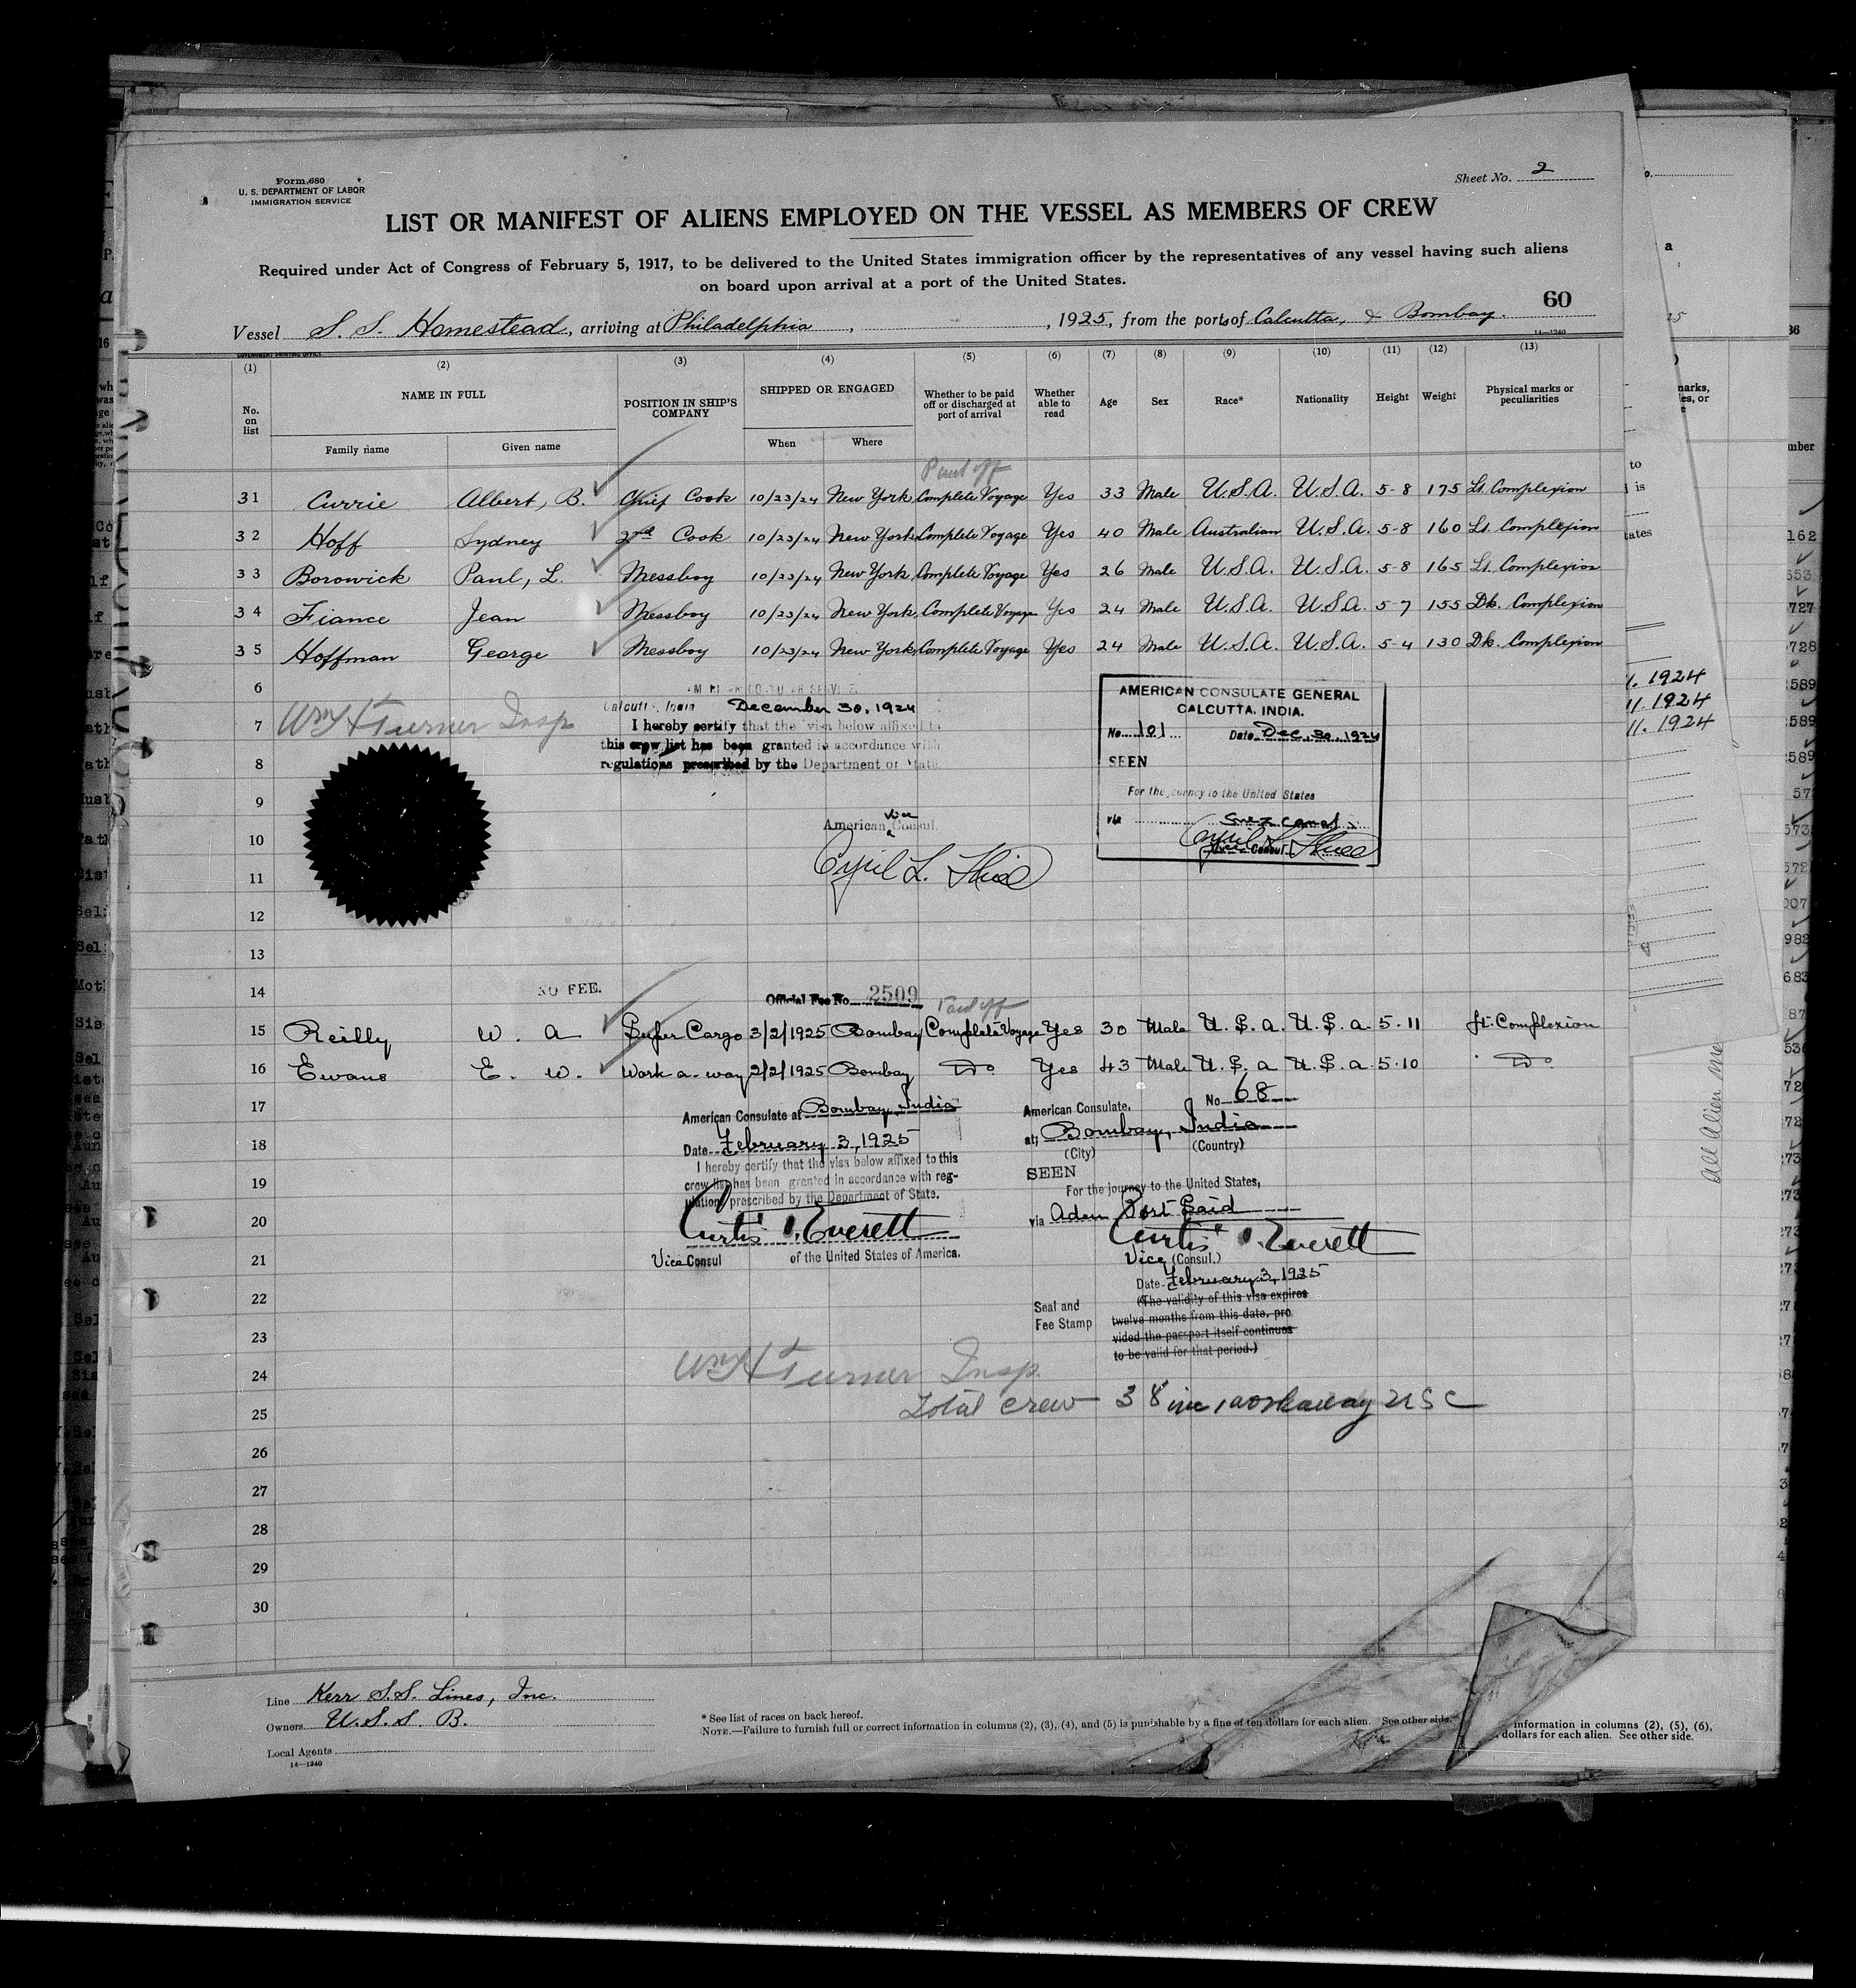 Form 680
U. S. DEPARTMENT OF LABOR
IMMIGRATION SERVICE
Sheet No. 2
LIST OR MANIFEST OF ALIENS EMPLOYED ON THE VESSEL AS MEMBERS OF CREW
Required under Act of Congress of February 5, 1917, to be delivered to the United States immigration officer by the representatives of any vessel having such aliens
on board upon arrival at a port of the United States.
60
Vessel S. S. Homestead, arriving at Philadelphia, , 1925, from the ports of Calcutta, & Bombay.
14—1240
GOVERNMENT PRINTING OFFICE
(1) (2) (3) (4) (5) (6) (7) (8) (9) (10) (11) (12) (13)
No. on list NAME IN FULL POSITION IN SHIP'S COMPANY SHIPPED OR ENGAGED Whether to be paid off or discharged at port of arrival Whether able to read Age Sex Race* Nationality Height Weight Physical marks or peculiarities
Family name Given name When Where
Paid off
31 Currie Albert, B. Chief Cook 10/23/24 New York Complete Voyage Yes 33 Male U.S.A. U.S.A. 5-8 175 Lt. Complexion
32 Hoff Sydney 2nd Cook 10/23/24 New York Complete Voyage Yes 40 Male Australian U.S.A. 5-8 160 Lt. Complexion
33 Borowick Paul, L. Messboy 10/23/24 New York Complete Voyage Yes 26 Male U.S.A. U.S.A. 5-8 165 Lt. Complexion
34 Fiance Jean Messboy 10/23/24 New York, Complete Voyage Yes 24 Male U.S.A. U.S.A. 5-7 155 Dk. Complexion
35 Hoffman George Messboy 10/23/24 New York Complete Voyage Yes 24 Male U.S.A. U.S.A. 5-4 130 Dk. Complexion
6
7 Wm H Turner Insp
8
9
10
11
12
13
Calcutta, India December 30, 1924
I hereby certify that the visa below affixed to
this crew list has been granted in accordance with
regulations prescribed by the Department of State.
American Vice Consul.
Cyril L.
AMERICAN CONSULATE GENERAL
CALCUTTA, INDIA.
No. 101 Date Dec. 30, 1924
SEEN
For the journey to the United States
via Suez canal
Consul
14 NO FEE. Official Fee No. 2509 Paid off
15 Reilly W. A Super Cargo 3/2/1925 Bombay Complete Voyage Yes 30 Male U.S.A. U.S.A. 5.11 Lt. Complexion
16 Ewans E. W. Work a-way 2/2/1925 Bombay Do Yes 43 Male U.S.A U.S.A. 5.10 Do
17
18
19
20
21
22
23
24
25
26
27
28
29
30
American Consulate at Bombay, India
Date February 3, 1925
I hereby certify that the visa below affixed to this
crew list has been granted in accordance with reg-
ulations prescribed by the Department of State.
Curtis Everett
Vice Consul of the United States of America.
American Consulate, No 68
at; Bombay, India
(City) (Country)
SEEN
For the journey to the United States,
via Aden Port Said
Curtis Everett
Vice (Consul.)
Date February 3, 1925
Seal and
Fee Stamp
(The validity of this visa expires
twelve months from this date, pro
vided the passport itself continues
to be valid for that period.)
Wm H Turner Insp.
Total crew 38 inc 1 workaway USC
Line Kerr S.S. Lines, Inc.
Owners U. S. S. B.
Local Agents
14—1240
* See list of races on back hereof.
NOTE.—Failure to furnish full or correct information in columns (2), (3), (4), and (5) is punishable by a fine of ten dollars for each alien. See other side.
information in columns (2), (5), (6),
dollars for each alien. See other side.
1. 1924
11. 1924
11. 1924
all alien me